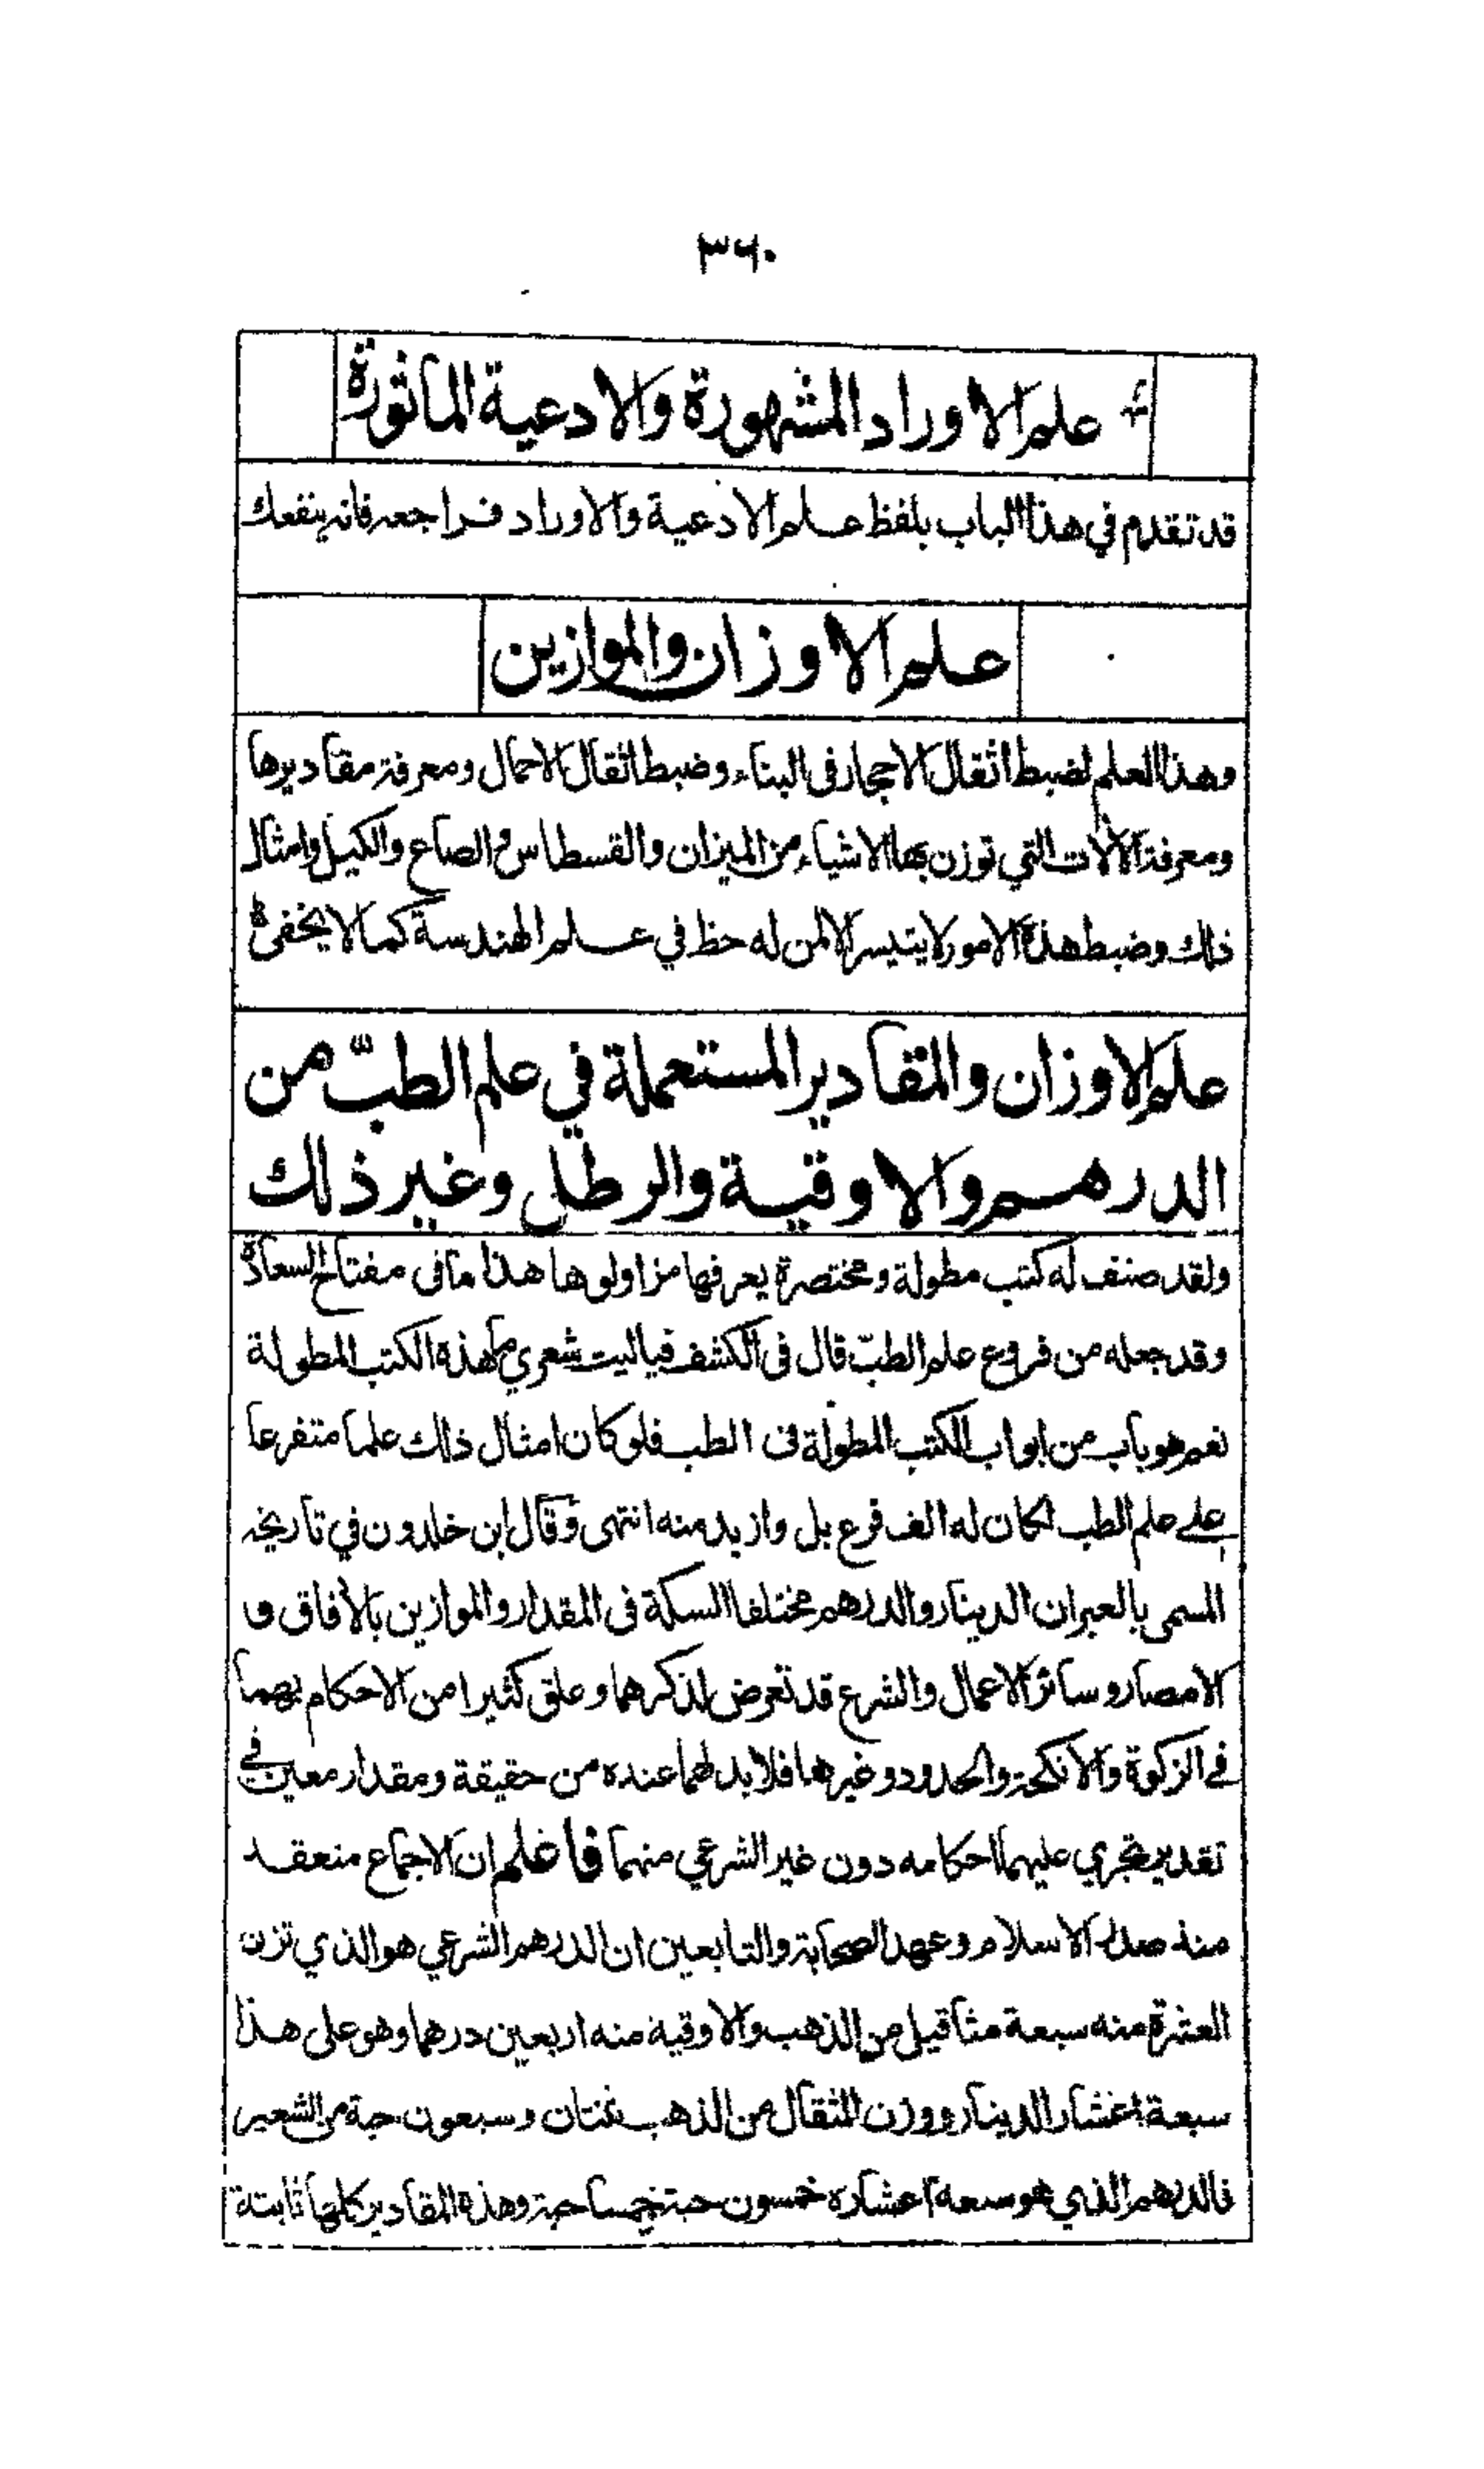 ٣٦٠
علم الاوراد المشهورة والادعية الماثورة
قد تقدم في هذا الباب بلفظ علم الادعية والاوراد فراجعه فانه ينفعك
علم الاوزان والموازين
وهذا العلم لضبط اثقال الاحجار فى البناء وضبط اثقال الاحمال ومعرفة مقاديرها
ومعرفة الآلات التي توزن بها الاشياء من الميزان والقسطاس والصاع والكيل وامثال
ذلك وضبط هذه الامور لا يتيسر الا لمن له حظ في علم الهندسة كما لا يخفى
علم الاوزان والمقادير المستعملة في علم الطبّ من
الدرهم والاوقية والرطل وغير ذلك
ولقد صنف له كتب مطولة ومختصرة يعرفها مزاولوها هذا ما فى مفتاح السعادة
وقد جعله من فروع علم الطبّ قال فى الكشف فيا ليت شعري ما هذه الكتب المطولة
نعم هو باب من ابواب الكتب المطولة فى الطب فلو كان امثال ذلك علما متفرعا
على علم الطب لكان له الف فرع بل وازيد منه انتهى وقال ابن خلدون في تاريخه
المسمى بالعبر ان الدينار والدرهم مختلفا السكة فى المقدار والموازين بالآفاق و
الامصار وسائر الاعمال والشرع قد تعرض لذكرهما وعلق كثيرا من الاحكام بهما
في الزكوة والانكحة والحدود وغيرها فلا بد لهما عنده من حقيقة ومقدار معين في
تقدير تجري عليهما احكامه دون غير الشرعي منهما فاعلم ان الاجماع منعقد
منذ صدر الاسلام وعهد الصحابة والتابعين ان الدرهم الشرعي هو الذي تزن
العشرة منه سبعة مثاقيل من الذهب والاوقية منه اربعين درهما وهو على هذا
سبعة اعشار الدينار ووزن المثقال من الذهب ثنتان وسبعون حبة من الشعير
فالدرهم الذي هو سبعة اعشاره خمسون حبة وخمسا حبة وهذه المقادير كلها ثابتة